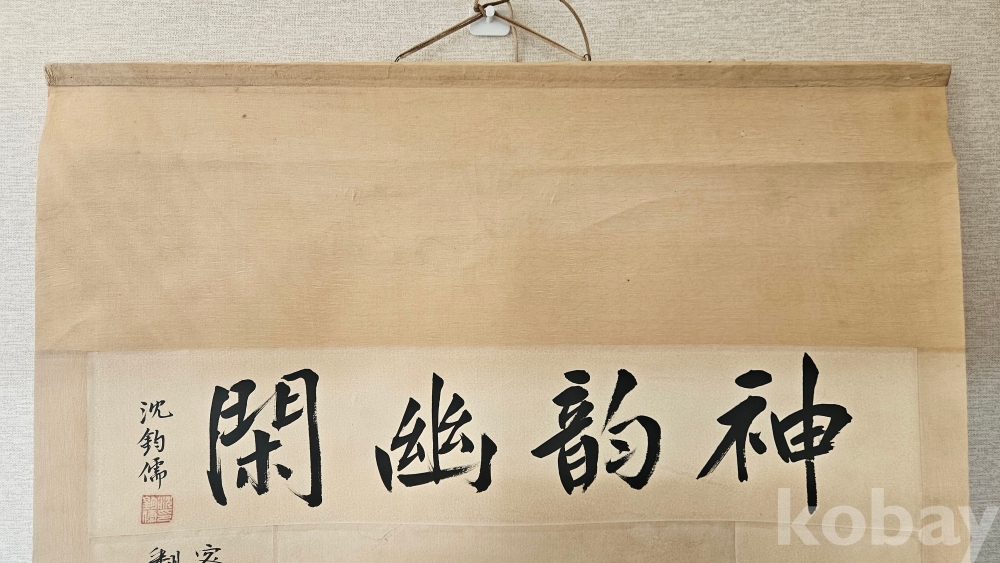 神韵幽閑
沈鈞儒
kobay